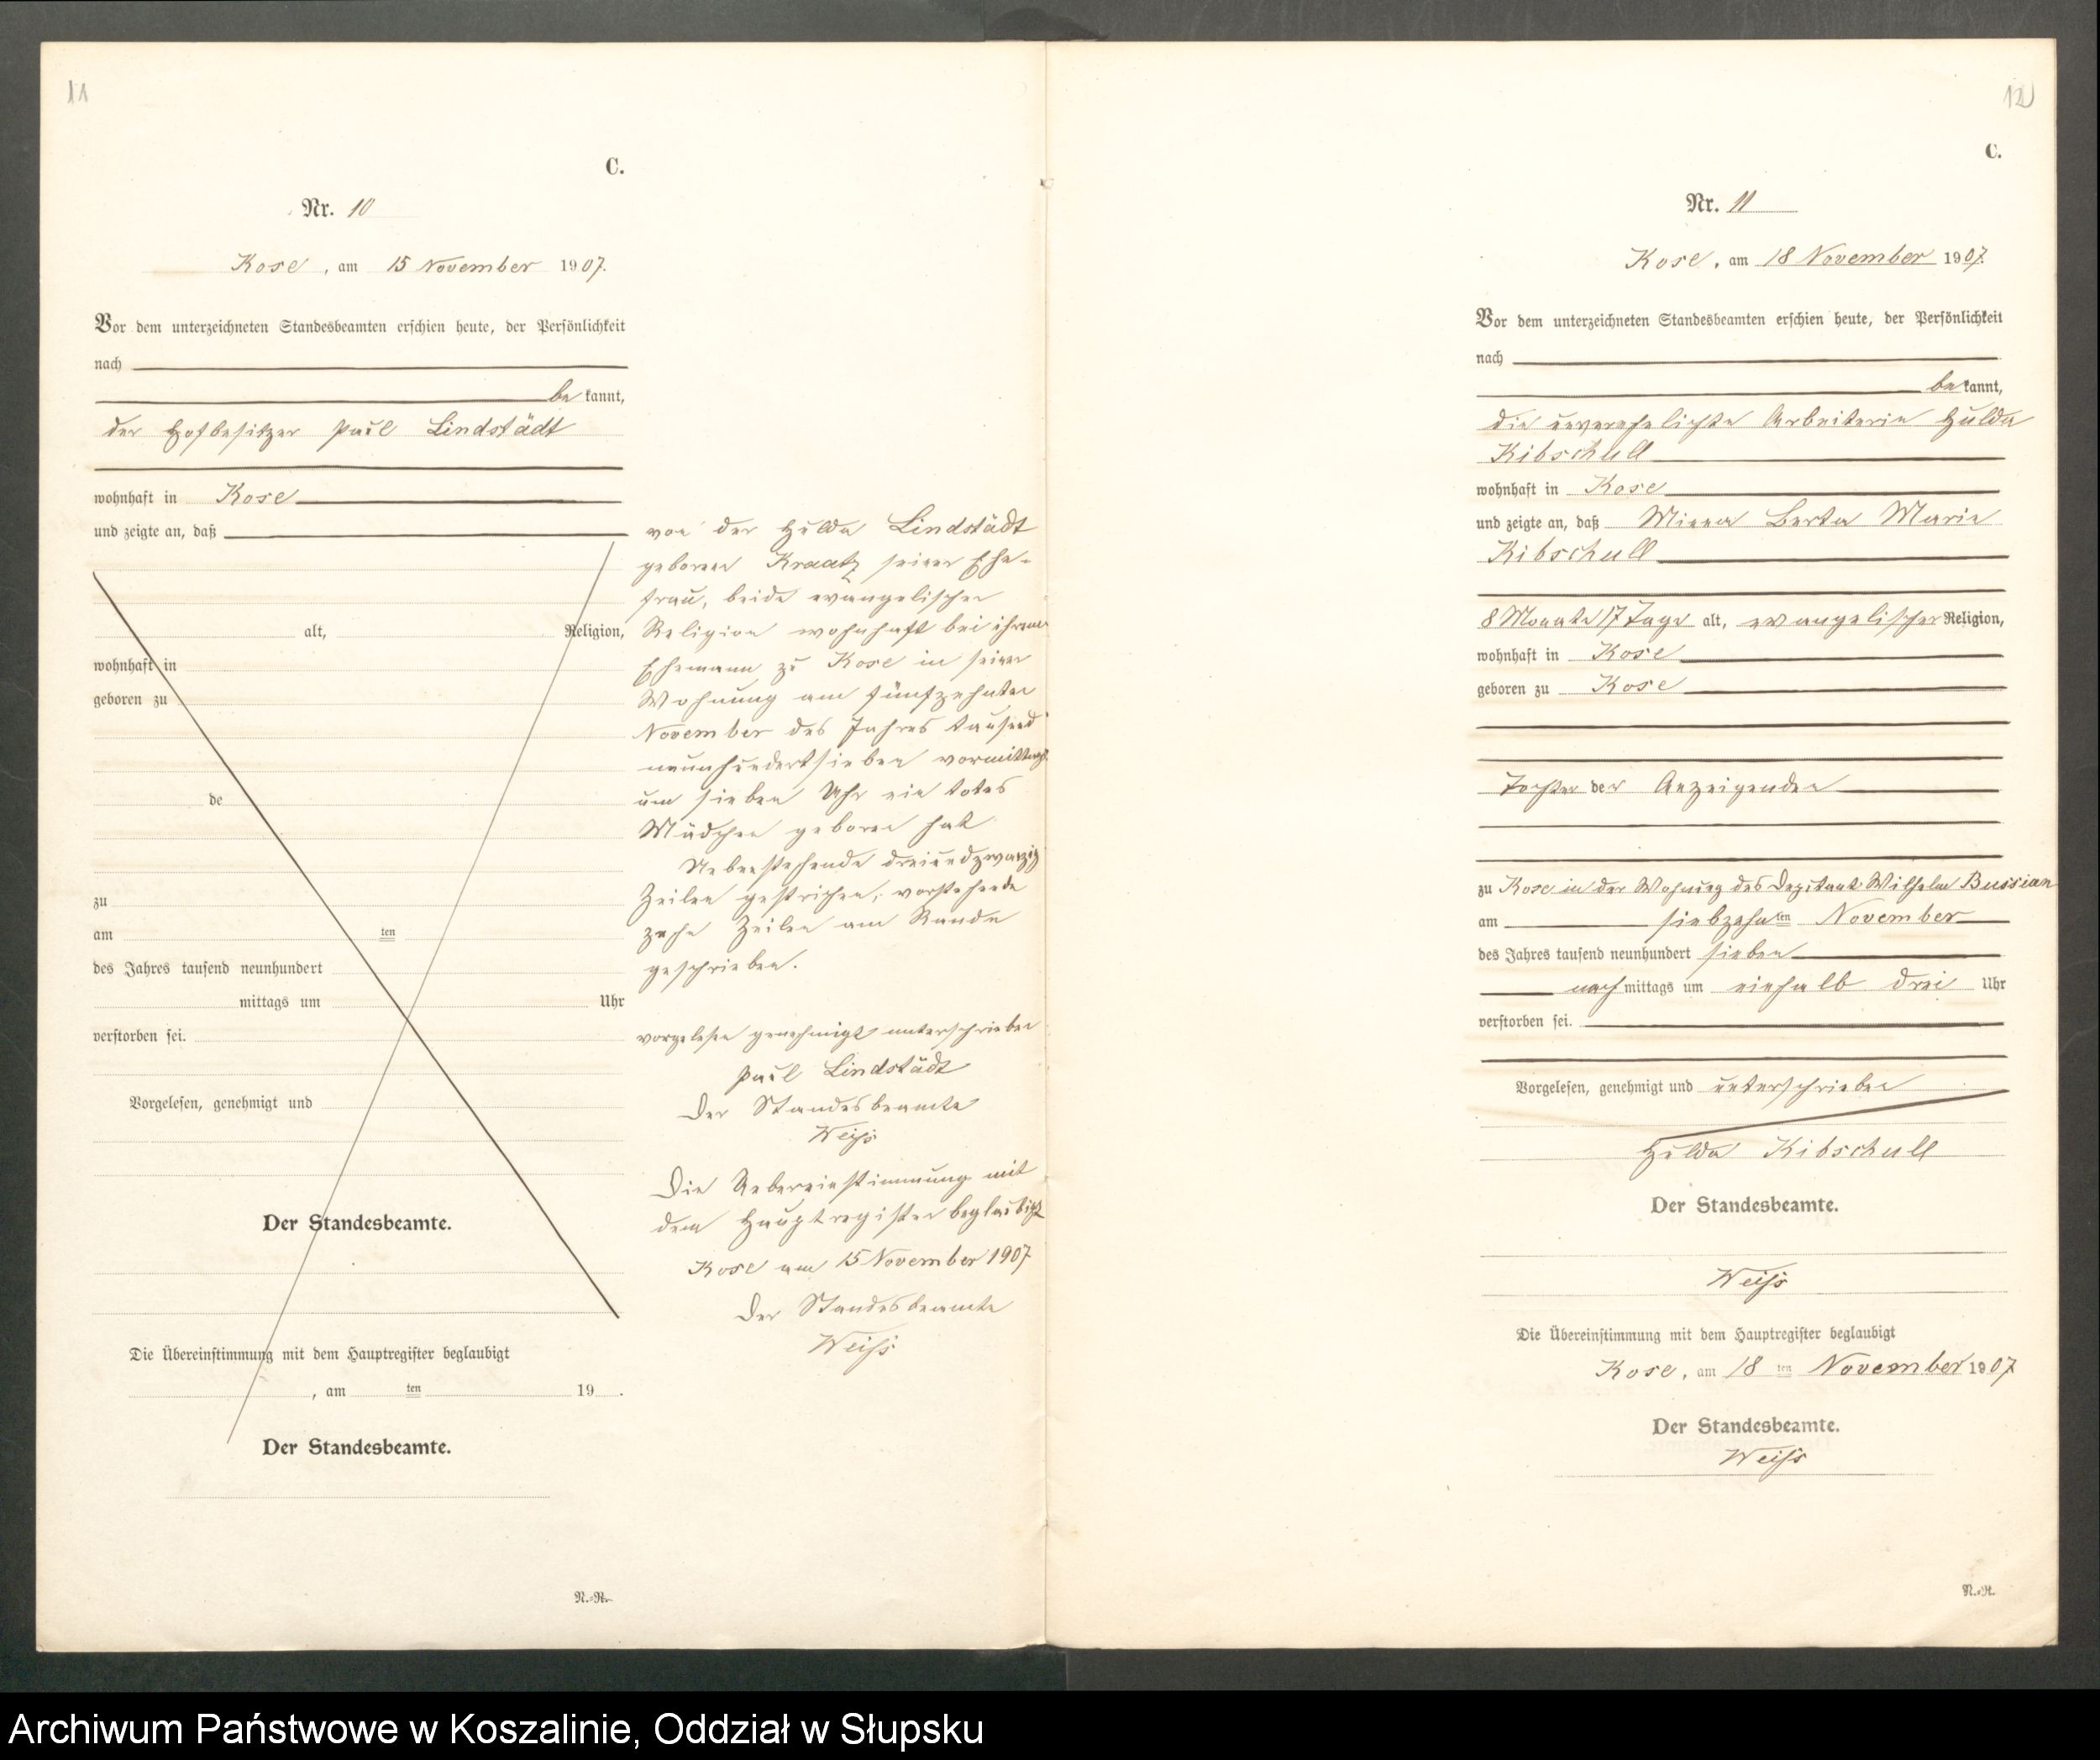 11
C.
Nr. 10
Kose, am 15 November 1907.
Vor dem unterzeichneten Standesbeamten erschien heute, der Persönlichkeit
nach
bekannt,
der Hofbesitzer Paul Lindstädt
wohnhaft in Kose
und zeigte an, daß
alt, Religion,
wohnhaft in
geboren zu
de
zu
am ten
des Jahres tausend neunhundert
mittags um Uhr
verstorben sei.
Vorgelesen, genehmigt und
Der Standesbeamte.
Die Übereinstimmung mit dem Hauptregister beglaubigt
, am ten 19 .
Der Standesbeamte.
N.-R.
von der Hulda Lindstädt
geborene Kraatz seiner Ehe-
frau, beide evangelischer
Religion wohnhaft bei ihrem
Ehemann zu Kose in seiner
Wohnung am fünfzehnten
November des Jahres tausend
neunhundertsieben vormittags
um sieben Uhr ein totes
Mädchen geboren hat
Nebenstehende dreiundzwanzig
Zeilen gestrichen, vorstehende
zehn Zeilen am Rande
geschrieben.
vorgelesen genehmigt unterschrieben
Paul Lindstädt
Der Standesbeamte
Weiß
Die Uebereinstimmung mit
dem Hauptregister beglaubigt
Kose am 15 November 1907
Der Standesbeamte
Weiß
12
C.
Nr. 11
Kose, am 18 November 1907.
Vor dem unterzeichneten Standesbeamten erschien heute, der Persönlichkeit
nach
bekannt,
die unverehelichte Arbeiterin Hulda
Kibschull
wohnhaft in Kose
und zeigte an, daß Minna Berta Marie
Kibschull
8 Monate 17 Tage alt, evangelischer Religion,
wohnhaft in Kose
geboren zu Kose
Tochter der Anzeigenden
zu Kose in der Wohnung des Deputant Wilhelm Bussian
am siebzehnten November
des Jahres tausend neunhundert sieben
nachmittags um einhalb drei Uhr
verstorben sei.
Vorgelesen, genehmigt und unterschrieben
Hulda Kibschull
Der Standesbeamte.
Weiß
Die Übereinstimmung mit dem Hauptregister beglaubigt
Kose, am 18 ten November 1907
Der Standesbeamte.
Weiß
N.-R.
Archiwum Państwowe w Koszalinie, Oddział w Słupsku